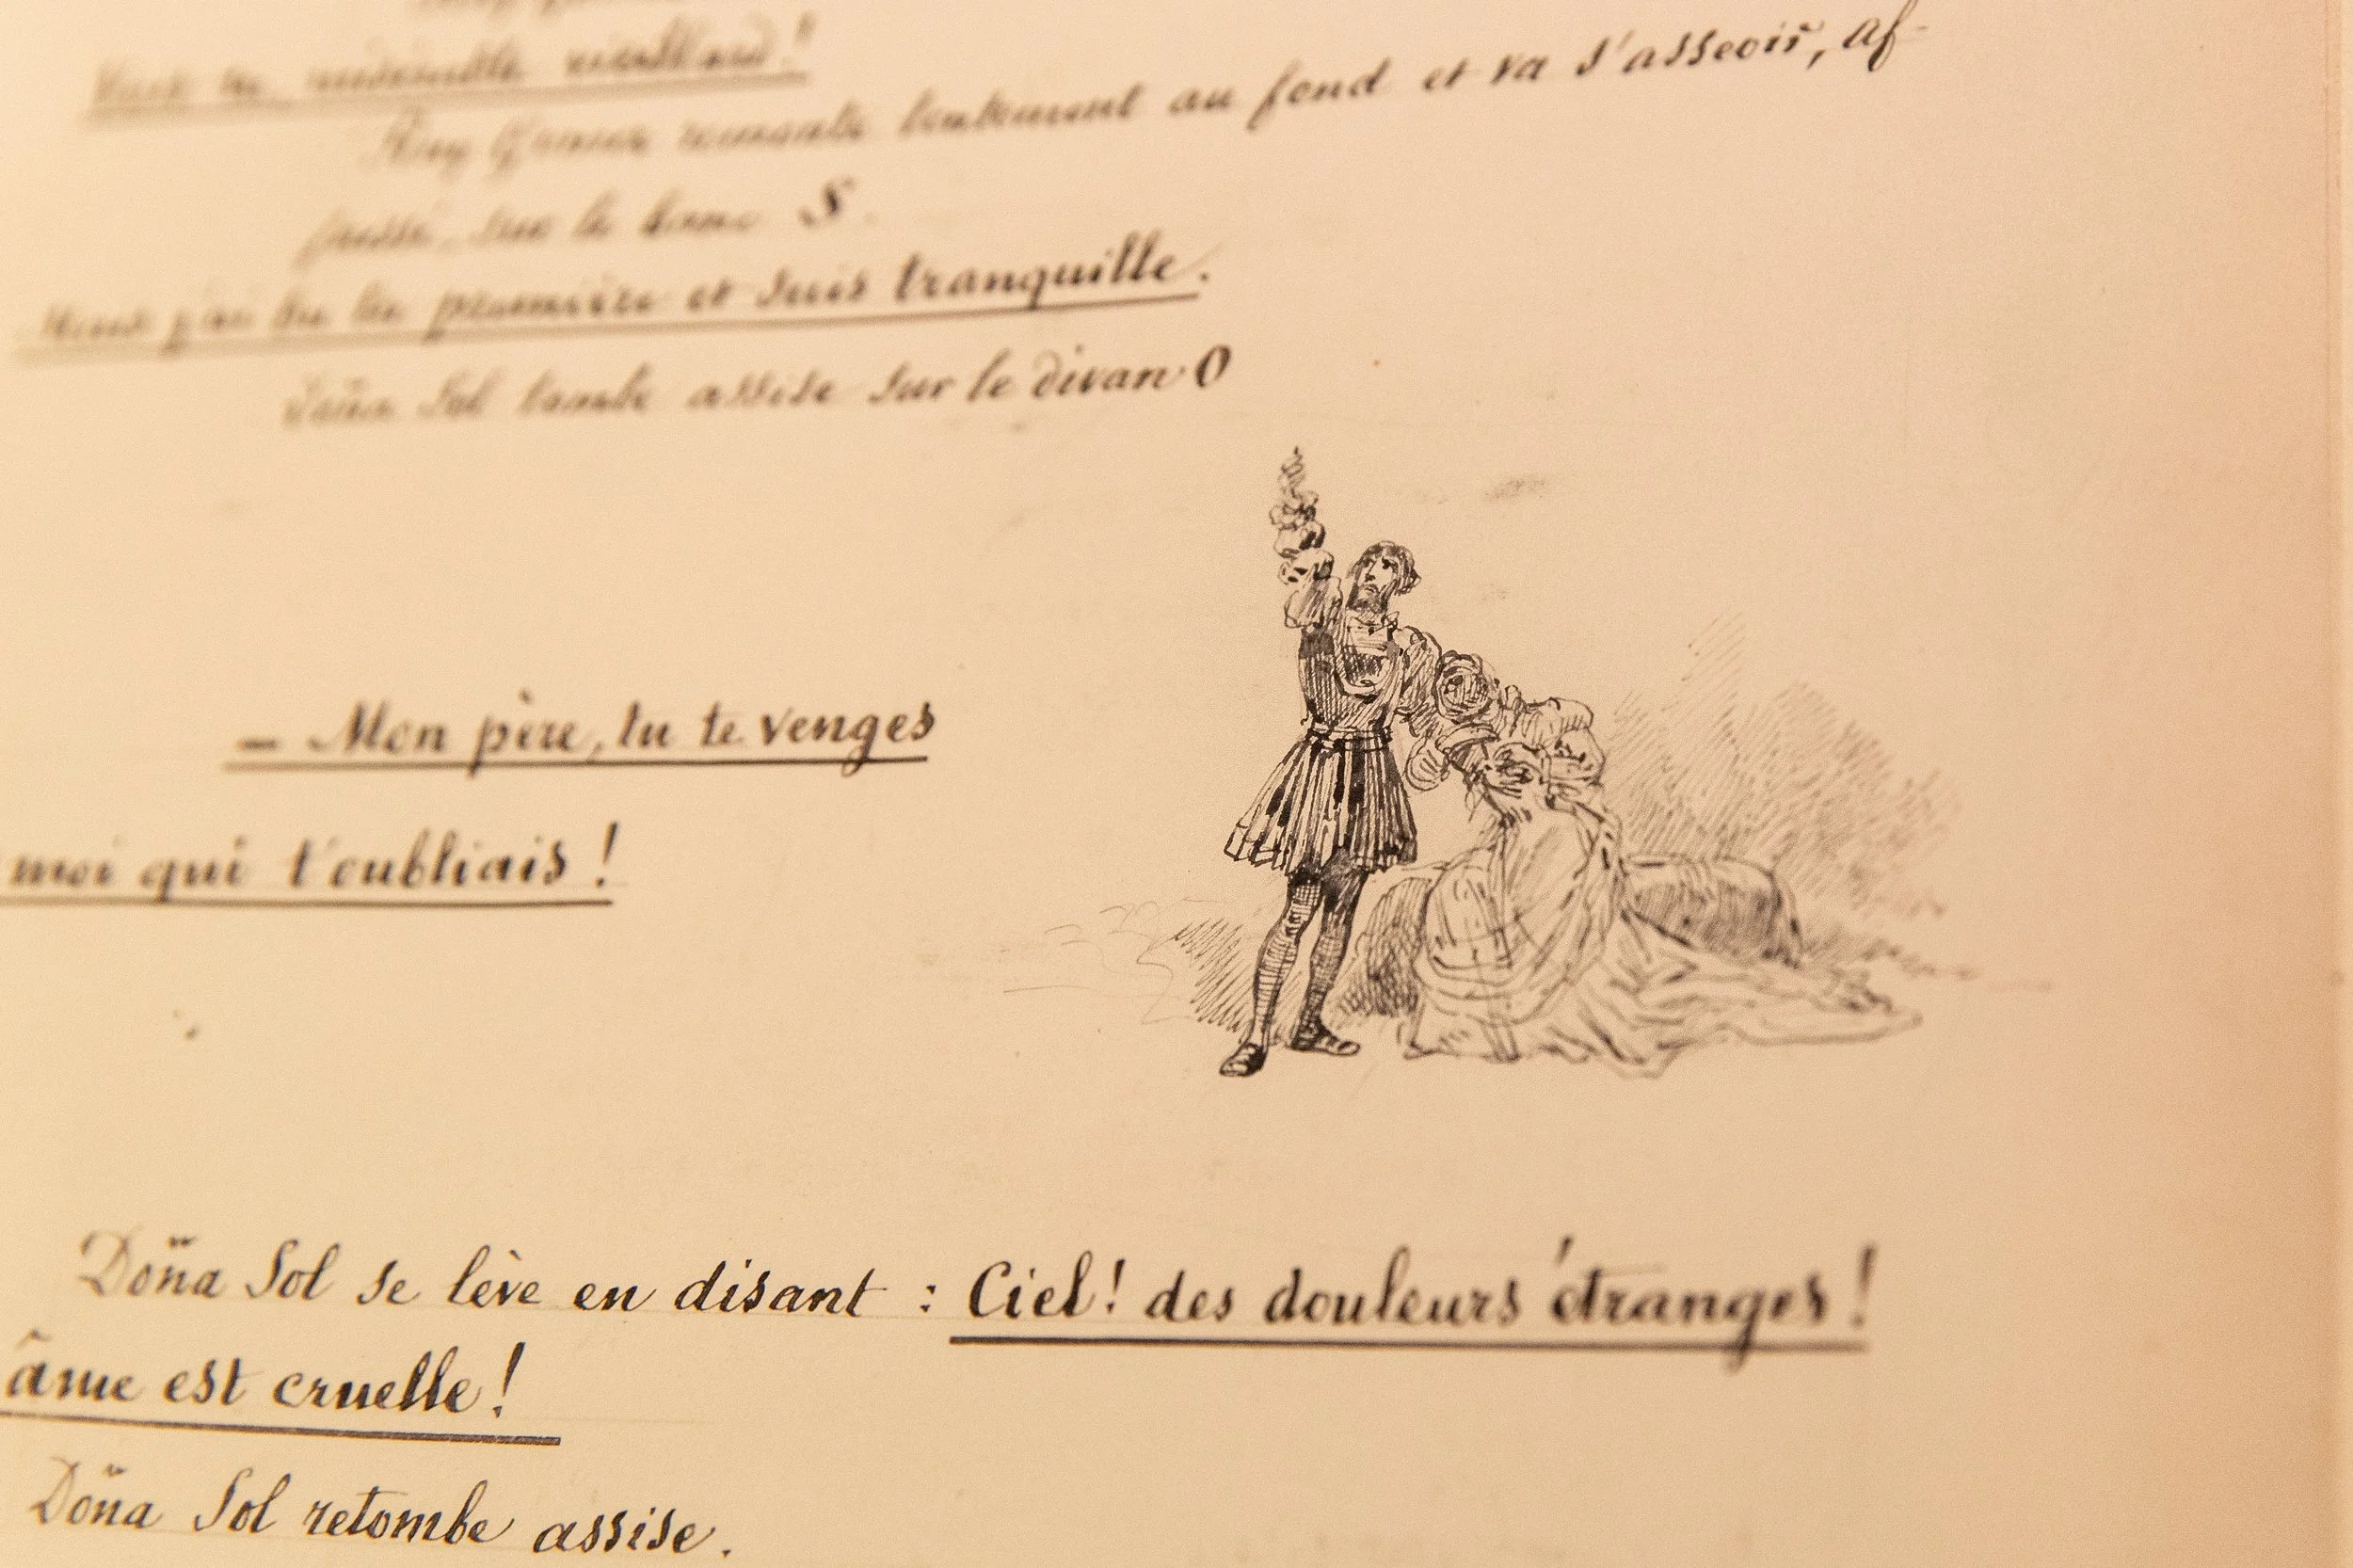 vieillard !
Ruy Gomez remonte lentement au fond et va s'asseoir, af-
faissé, sur le banc S.
Mais j'ai bu la première et suis tranquille.
Doña Sol tombe assise sur le divan O
— Mon père, tu te venges
moi qui t'oubliais !
Doña Sol se lève en disant : Ciel ! des douleurs étranges !
âme est cruelle !
Doña Sol retombe assise.